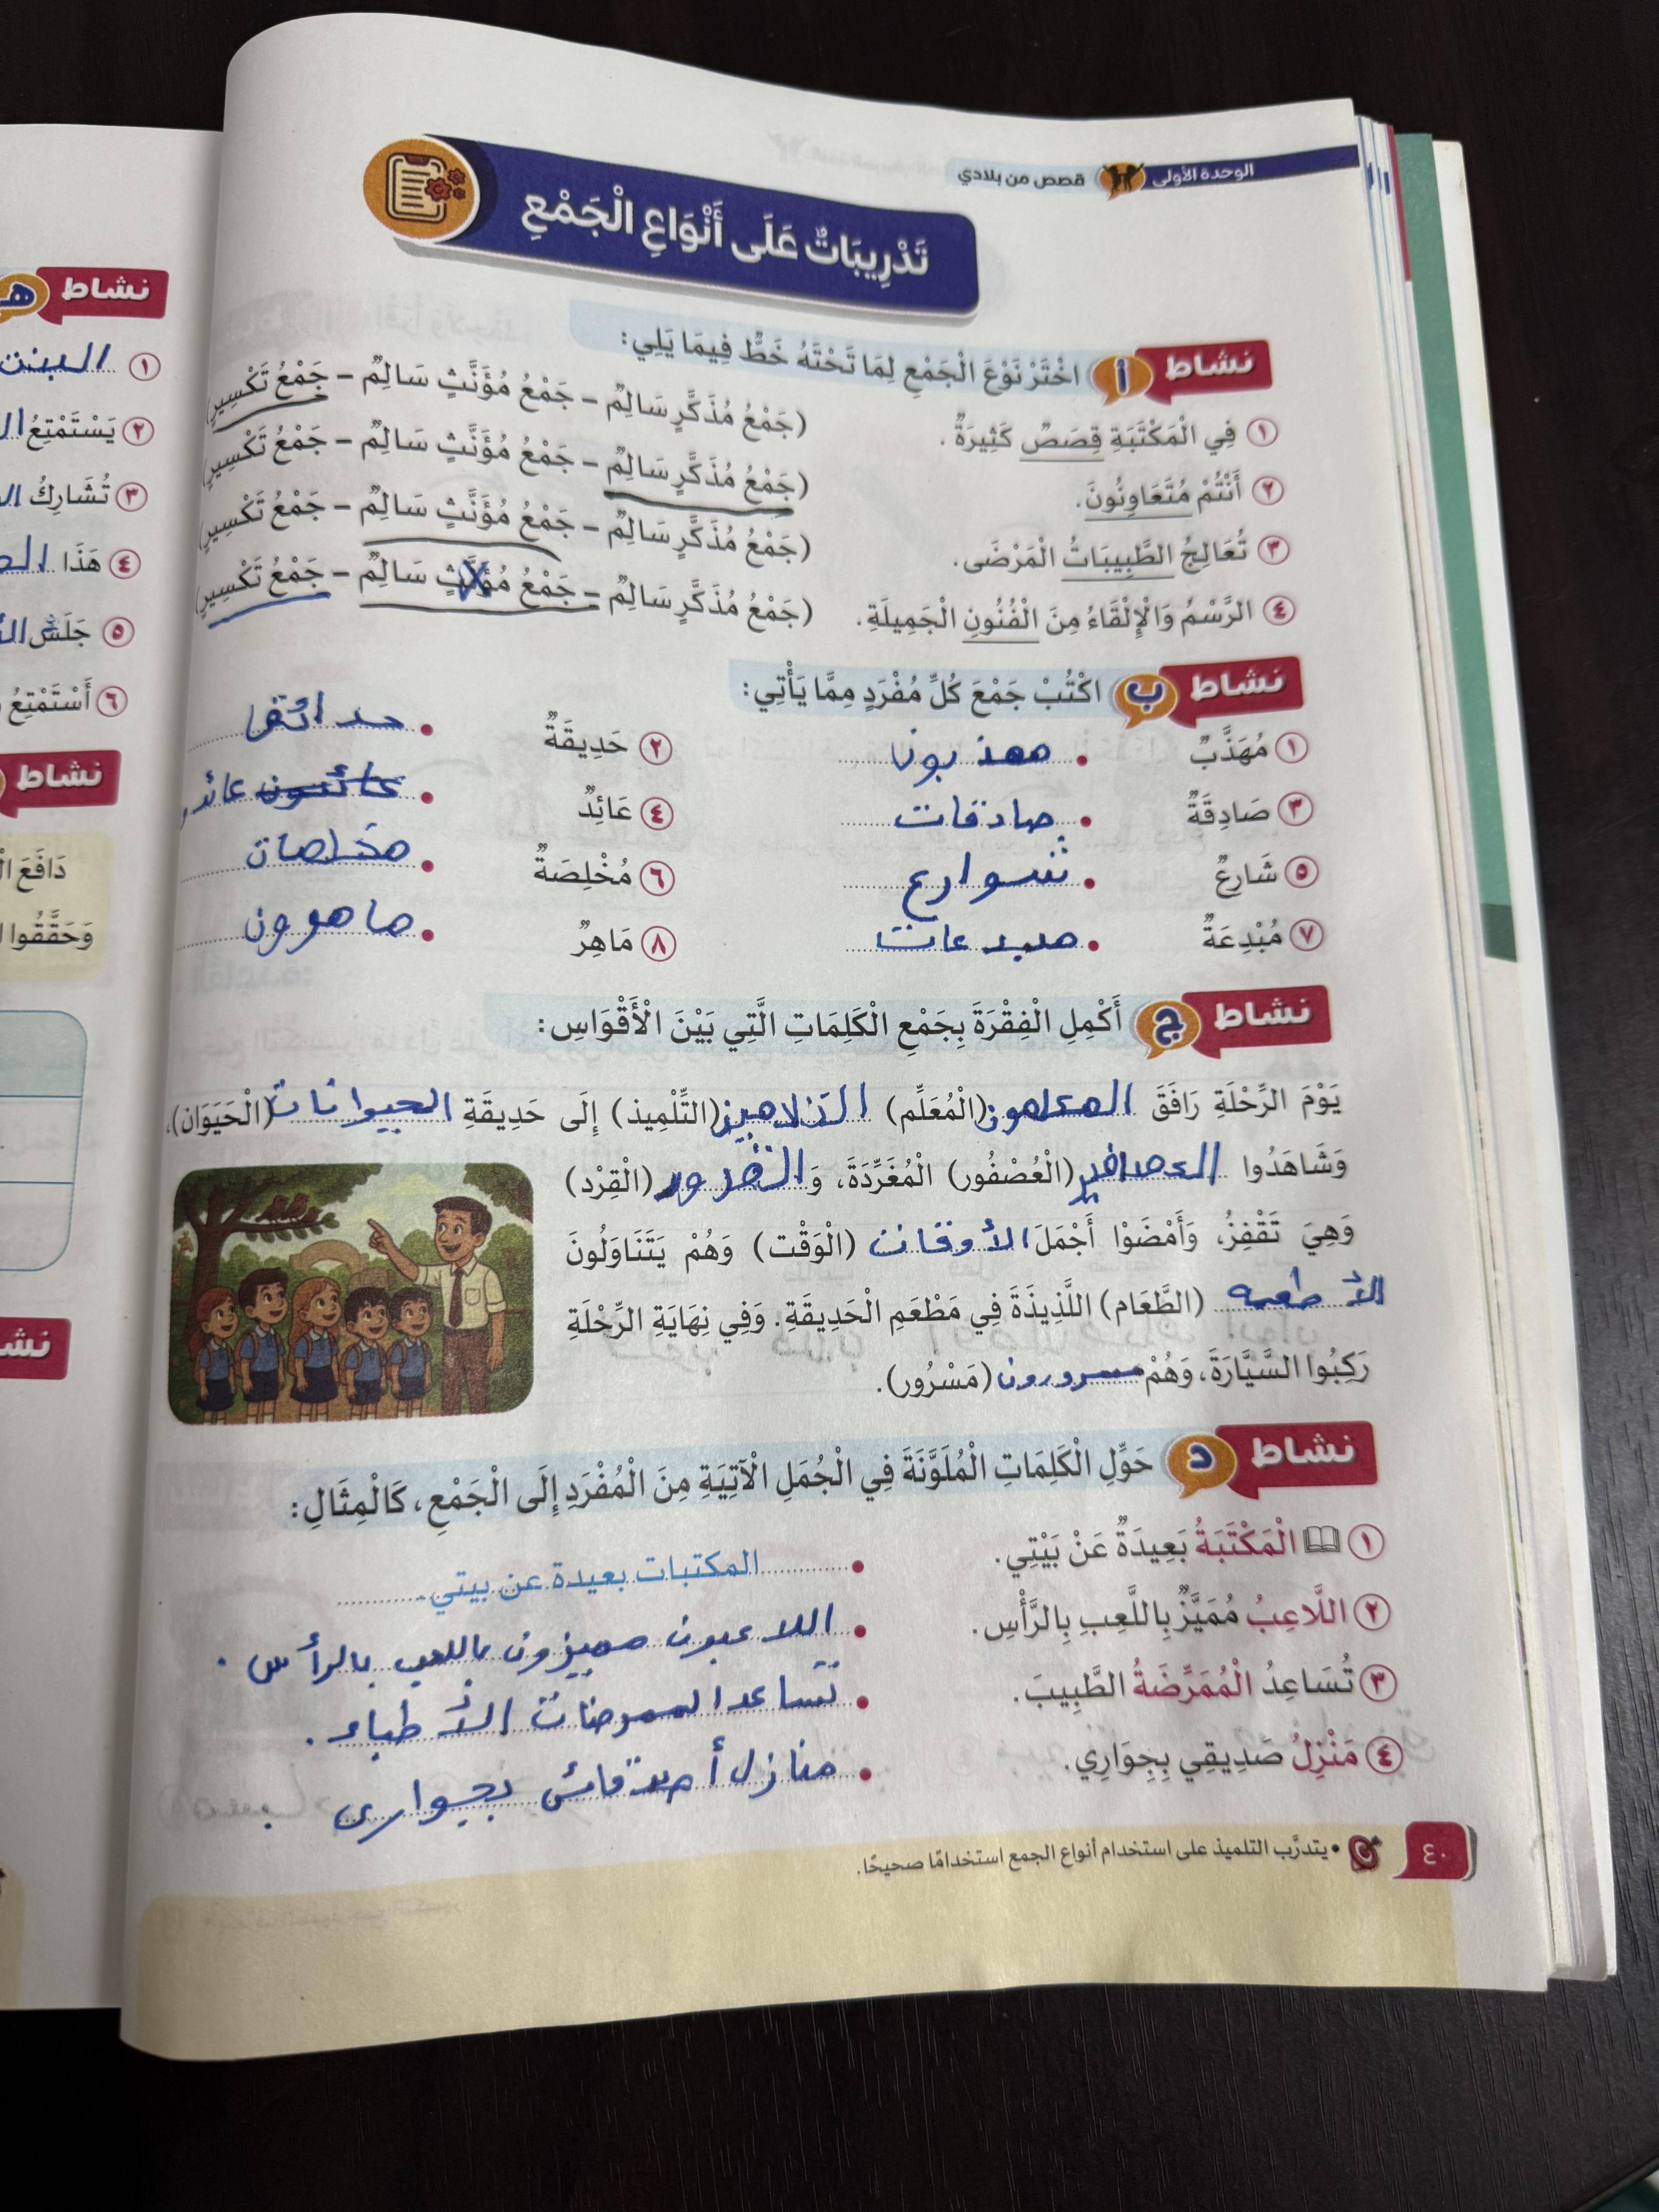 الوحدة الأولى قصص من بلادي
تَدْرِيبَاتٌ عَلَى أَنْوَاعِ الْجَمْعِ
نشاط أ اخْتَرْ نَوْعَ الْجَمْعِ لِمَا تَحْتَهُ خَطٌّ فِيمَا يَلِي:
١ فِي الْمَكْتَبَةِ قِصَصٌ كَثِيرَةٌ. (جَمْعُ مُذَكَّرٍ سَالِمٌ – جَمْعُ مُؤَنَّثٍ سَالِمٌ – جَمْعُ تَكْسِيرٍ)
٢ أَنْتُمْ مُتَعَاوِنُونَ. (جَمْعُ مُذَكَّرٍ سَالِمٌ – جَمْعُ مُؤَنَّثٍ سَالِمٌ – جَمْعُ تَكْسِيرٍ)
٣ تُعَالِجُ الطَّبِيبَاتُ الْمَرْضَى. (جَمْعُ مُذَكَّرٍ سَالِمٌ – جَمْعُ مُؤَنَّثٍ سَالِمٌ – جَمْعُ تَكْسِيرٍ)
٤ الرَّسْمُ وَالْإِلْقَاءُ مِنَ الْفُنُونِ الْجَمِيلَةِ. (جَمْعُ مُذَكَّرٍ سَالِمٌ – جَمْعُ مُؤَنَّثٍ سَالِمٌ – جَمْعُ تَكْسِيرٍ)
نشاط ب اكْتُبْ جَمْعَ كُلِّ مُفْرَدٍ مِمَّا يَأْتِي:
١ مُهَذَّبٌ • مهذبون ٢ حَدِيقَةٌ • حدائق
٣ صَادِقَةٌ • صادقات ٤ عَائِدٌ •
٥ شَارِعٌ • شوارع ٦ مُخْلِصَةٌ • مخلصات
٧ مُبْدِعَةٌ • مبدعات ٨ مَاهِرٌ • ماهرون
نشاط ج أَكْمِلِ الْفِقْرَةَ بِجَمْعِ الْكَلِمَاتِ الَّتِي بَيْنَ الْأَقْوَاسِ:
يَوْمَ الرِّحْلَةِ رَافَقَ المعلمون (الْمُعَلِّم) التلاميذ (التِّلْمِيذ) إِلَى حَدِيقَةِ الحيوانات (الْحَيَوَان)،
وَشَاهَدُوا العصافير (الْعُصْفُور) الْمُغَرِّدَةَ، وَ القرود (الْقِرْد)
وَهِيَ تَقْفِزُ، وَأَمْضَوْا أَجْمَلَ الأوقات (الْوَقْت) وَهُمْ يَتَنَاوَلُونَ
الأطعمه (الطَّعَام) اللَّذِيذَةَ فِي مَطْعَمِ الْحَدِيقَةِ. وَفِي نِهَايَةِ الرِّحْلَةِ
رَكِبُوا السَّيَّارَةَ، وَهُمْ مسرورون (مَسْرُور).
نشاط د حَوِّلِ الْكَلِمَاتِ الْمُلَوَّنَةَ فِي الْجُمَلِ الْآتِيَةِ مِنَ الْمُفْرَدِ إِلَى الْجَمْعِ، كَالْمِثَالِ:
١ الْمَكْتَبَةُ بَعِيدَةٌ عَنْ بَيْتِي. • المكتبات بعيدة عن بيتي.
٢ اللَّاعِبُ مُمَيَّزٌ بِاللَّعِبِ بِالرَّأْسِ. • اللاعبون مميزون باللعب بالرأس.
٣ تُسَاعِدُ الْمُمَرِّضَةُ الطَّبِيبَ. • تساعد الممرضات الأطباء.
٤ مَنْزِلُ صَدِيقِي بِجِوَارِي. • منازل أصدقائى بجوارى
٤٠ • يتدرَّب التلميذ على استخدام أنواع الجمع استخدامًا صحيحًا.
نشاط هـ
١ البنت
٢ يَسْتَمْتِعُ
٣ تُشَارِكُ
٤ هَذَا
٥ جَلَسَ
٦ أَسْتَمْتِعُ
نشاط
دَافَعَ
وَحَقَّقُوا